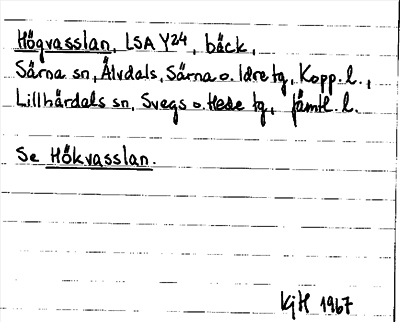 Högvasslan, LSA Y24, bäck,
Särna sn, Älvdals, Särna o. Idre tg, Kopp. l.,
Lillhärdals sn, Svegs o. Hede tg, Jämtl. l.
Se Hökvasslan.
KjH 1967